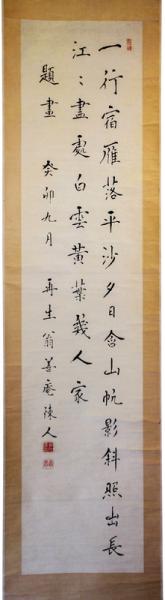 一行宿雁落平沙夕日含山帆影斜照出長
江〻盡處白雲黃葉幾人家
題畫 癸卯九月 再生翁善庵陳人